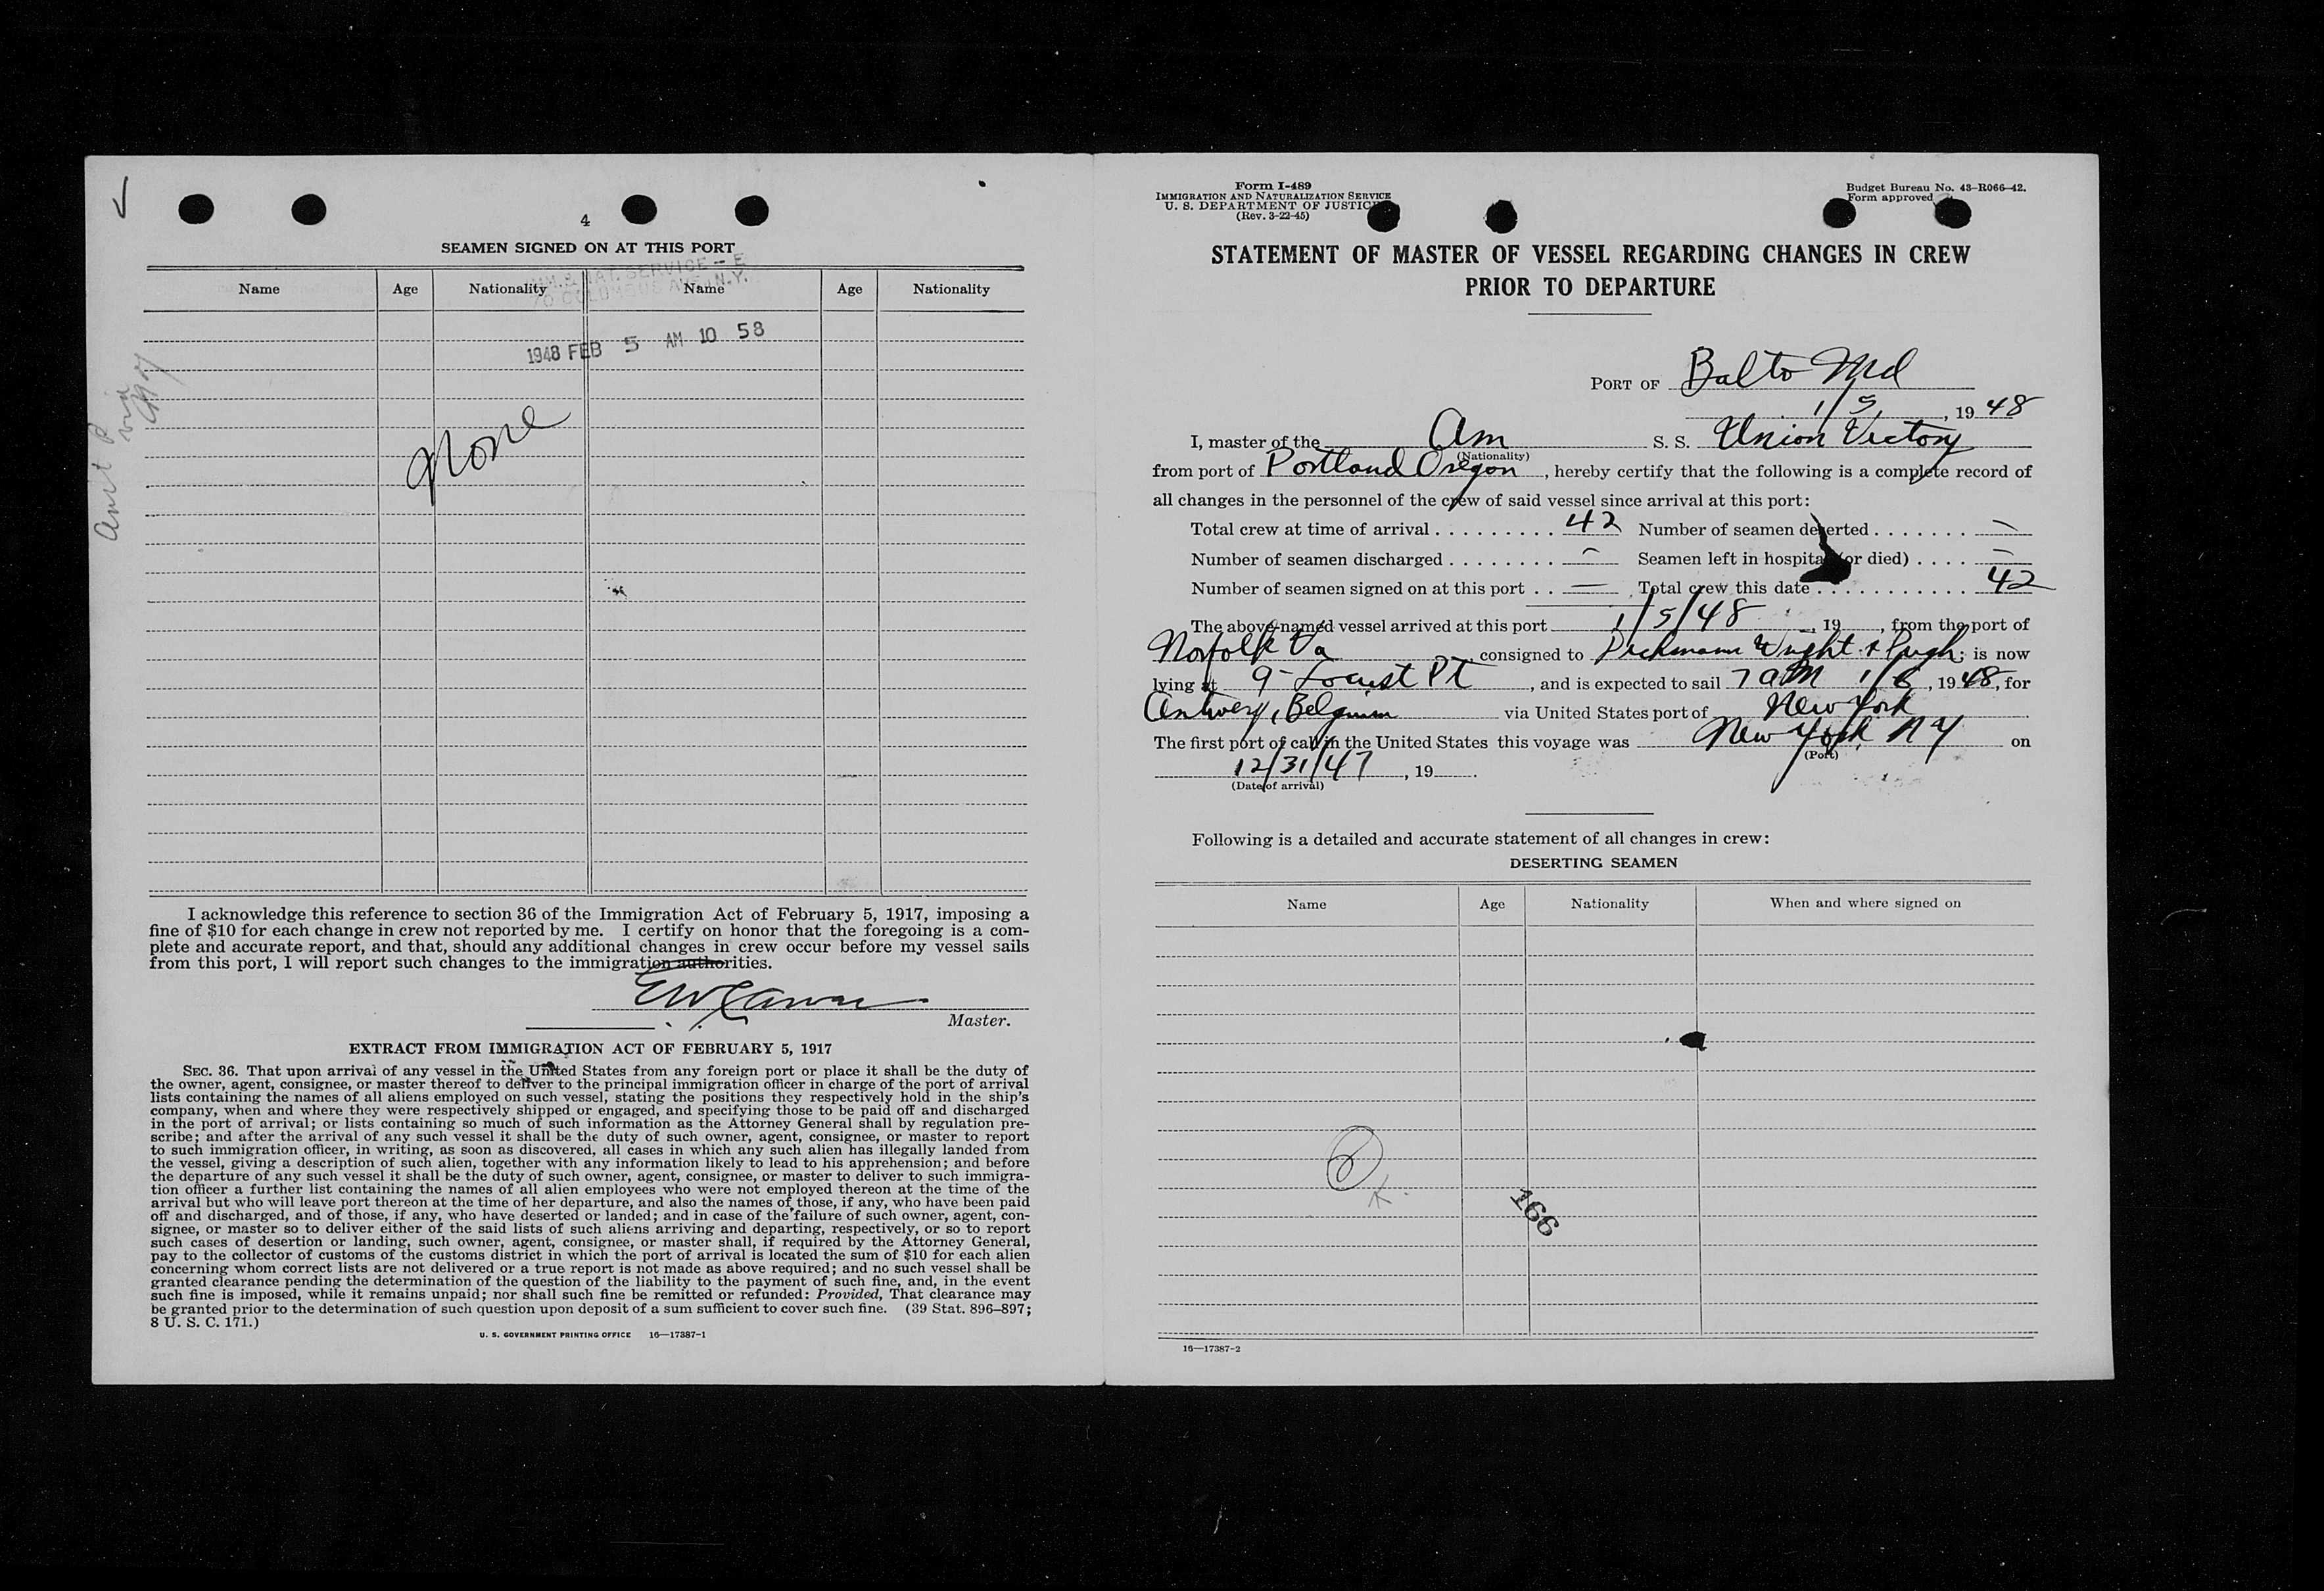 4
SEAMEN SIGNED ON AT THIS PORT
Name Age Nationality Name Age Nationality
1948 FEB 5 AM 10 58
None
I acknowledge this reference to section 36 of the Immigration Act of February 5, 1917, imposing a
fine of $10 for each change in crew not reported by me. I certify on honor that the foregoing is a com-
plete and accurate report, and that, should any additional changes in crew occur before my vessel sails
from this port, I will report such changes to the immigration authorities.
Master.
EXTRACT FROM IMMIGRATION ACT OF FEBRUARY 5, 1917
SEC. 36. That upon arrival of any vessel in the United States from any foreign port or place it shall be the duty of
the owner, agent, consignee, or master thereof to deliver to the principal immigration officer in charge of the port of arrival
lists containing the names of all aliens employed on such vessel, stating the positions they respectively hold in the ship's
company, when and where they were respectively shipped or engaged, and specifying those to be paid off and discharged
in the port of arrival; or lists containing so much of such information as the Attorney General shall by regulation pre-
scribe; and after the arrival of any such vessel it shall be the duty of such owner, agent, consignee, or master to report
to such immigration officer, in writing, as soon as discovered, all cases in which any such alien has illegally landed from
the vessel, giving a description of such alien, together with any information likely to lead to his apprehension; and before
the departure of any such vessel it shall be the duty of such owner, agent, consignee, or master to deliver to such immigra-
tion officer a further list containing the names of all alien employees who were not employed thereon at the time of the
arrival but who will leave port thereon at the time of her departure, and also the names of those, if any, who have been paid
off and discharged, and of those, if any, who have deserted or landed; and in case of the failure of such owner, agent, con-
signee, or master so to deliver either of the said lists of such aliens arriving and departing, respectively, or so to report
such cases of desertion or landing, such owner, agent, consignee, or master shall, if required by the Attorney General,
pay to the collector of customs of the customs district in which the port of arrival is located the sum of $10 for each alien
concerning whom correct lists are not delivered or a true report is not made as above required; and no such vessel shall be
granted clearance pending the determination of the question of the liability to the payment of such fine, and, in the event
such fine is imposed, while it remains unpaid; nor shall such fine be remitted or refunded: Provided, That clearance may
be granted prior to the determination of such question upon deposit of a sum sufficient to cover such fine. (39 Stat. 896–897;
8 U. S. C. 171.)
U. S. GOVERNMENT PRINTING OFFICE 16—17387-1
Form I-489
IMMIGRATION AND NATURALIZATION SERVICE
U. S. DEPARTMENT OF JUSTICE
(Rev. 3-22-45)
Budget Bureau No. 43-R066-42.
Form approved
STATEMENT OF MASTER OF VESSEL REGARDING CHANGES IN CREW
PRIOR TO DEPARTURE
PORT OF Balto Md
1/5, 1948
I, master of the Am S. S. Union Victory
(Nationality)
from port of Portland Oregon, hereby certify that the following is a complete record of
all changes in the personnel of the crew of said vessel since arrival at this port:
Total crew at time of arrival 42 Number of seamen deserted –
Number of seamen discharged – Seamen left in hospital (or died) –
Number of seamen signed on at this port – Total crew this date 42
The above-named vessel arrived at this port 1/5/48, 19, from the port of
Norfolk Va consigned to Wright & Pugh; is now
lying at 9 Locust Pt, and is expected to sail 7 am 1/6, 1948, for
Antwerp, Belgium via United States port of New York
The first port of call in the United States this voyage was New York NY on
(Port)
12/31/47, 19
(Date of arrival)
Following is a detailed and accurate statement of all changes in crew:
DESERTING SEAMEN
Name Age Nationality When and where signed on
166
16—17387-2